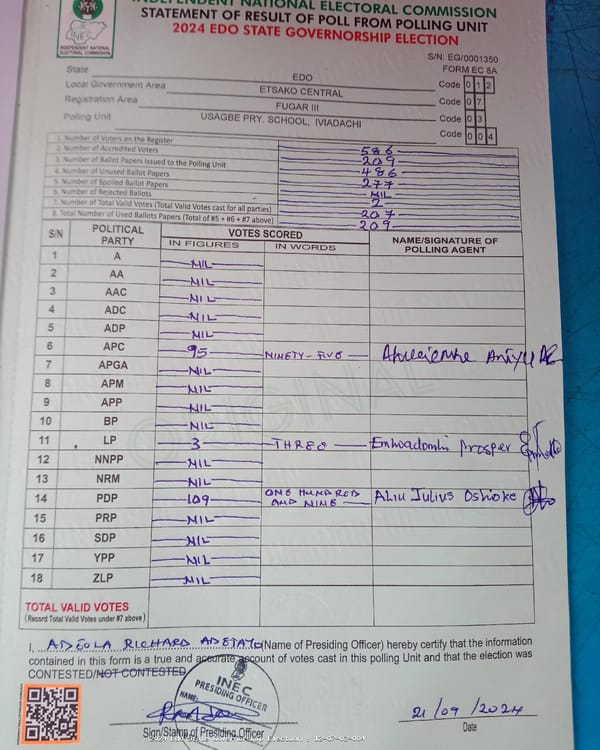 INDEPENDENT NATIONAL ELECTORAL COMMISSION
STATEMENT OF RESULT OF POLL FROM POLLING UNIT
2024 EDO STATE GOVERNORSHIP ELECTION
INEC
INDEPENDENT NATIONAL
ELECTORAL COMMISSION
S/N: EG/0001350
FORM EC 8A
State EDO Code 0 1 2
Local Government Area ETSAKO CENTRAL Code 0 7
Registration Area FUGAR III Code 0 3
Polling Unit USAGBE PRY. SCHOOL, IVIADACHI Code 0 0 4
1. Number of Voters on the Register 586
2. Number of Accredited Voters 209
3. Number of Ballot Papers Issued to the Polling Unit 486
4. Number of Unused Ballot Papers 277
5. Number of Spoiled Ballot Papers NIL
6. Number of Rejected Ballots 2
7. Number of Total Valid Votes (Total Valid Votes cast for all parties) 207
8. Total Number of Used Ballots Papers (Total of #5 + #6 + #7 above) 209
S/N POLITICAL PARTY VOTES SCORED NAME/SIGNATURE OF POLLING AGENT
IN FIGURES IN WORDS
1 A NIL
2 AA NIL
3 AAC NIL
4 ADC NIL
5 ADP NIL
6 APC 95 NINETY-FIVE
7 APGA NIL
8 APM NIL
9 APP NIL
10 BP NIL
11 LP 3 THREE Prosper
12 NNPP NIL
13 NRM NIL
14 PDP 109 ONE HUNDRED AND NINE Aliu Julius Oshioke
15 PRP NIL
16 SDP NIL
17 YPP NIL
18 ZLP NIL
ORIGINAL
TOTAL VALID VOTES
(Record Total Valid Votes under #7 above)
I, ADEOLA RICHARD (Name of Presiding Officer) hereby certify that the information
contained in this form is a true and accurate account of votes cast in this polling Unit and that the election was
CONTESTED/NOT CONTESTED
INEC
PRESIDING OFFICER
NAME:
21/09/2024
Sign/Stamp of Presiding Officer
Date